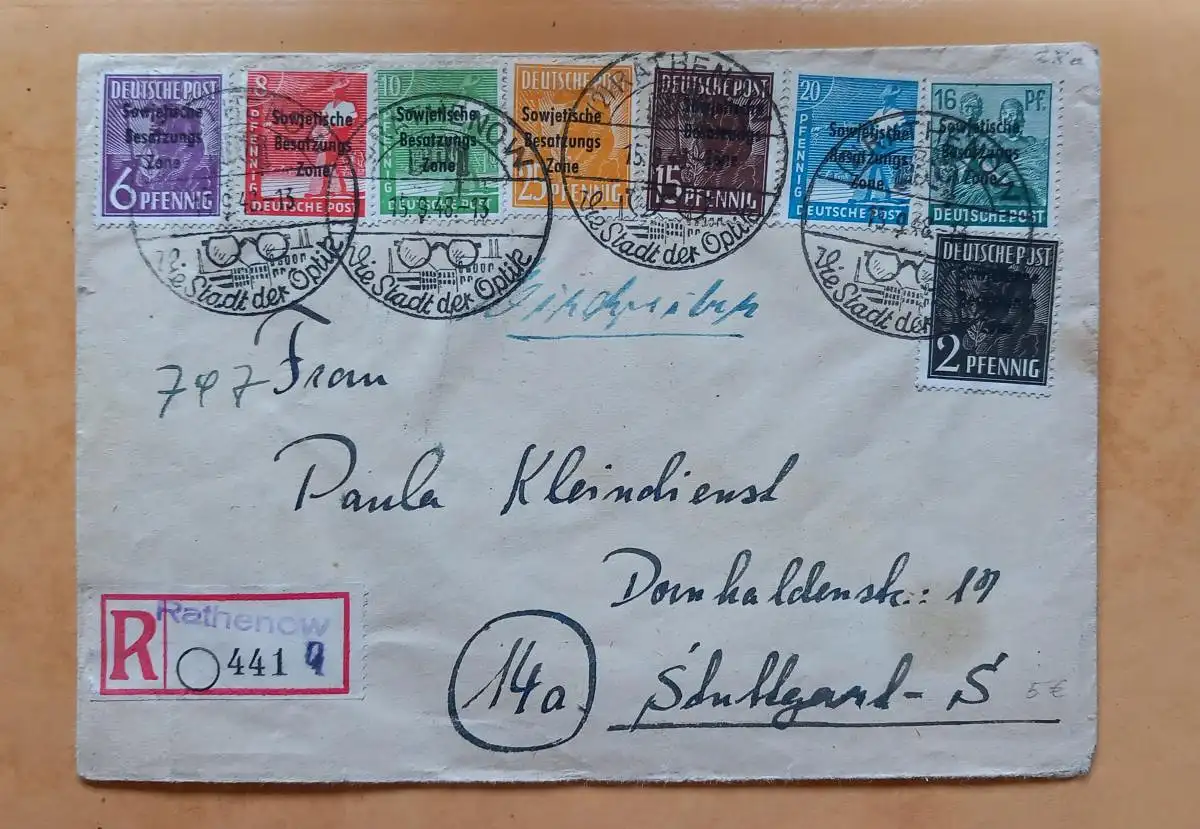 DEUTSCHE POST
Sowjetische
Besatzungs
Zone
6 PFENNIG
8
PFENNIG
Sowjetische
Besatzungs
Zone
DEUTSCHE POST
10
PFENNIG
Sowjetische
Besatzungs
Zone
DEUTSCHE POST
DEUTSCHE POST
Sowjetische
Besatzungs
Zone
25 PFENNIG
DEUTSCHE POST
Sowjetische
Besatzungs
Zone
15 PFENNIG
20
PFENNIG
Sowjetische
Besatzungs
Zone
DEUTSCHE POST
16 Pf.
Sowjetische
Besatzungs
Zone
DEUTSCHE POST
DEUTSCHE POST
Besatzungs
Zone
2 PFENNIG
Die Stadt der Optik
15.9.48.-13
Die Stadt der Optik
RATHEN
Die Stadt der Optik
Die Stadt der
Einschreiben
747
Frau
Paula Kleindienst
Dornhaldenstr.: 19
14a
Stuttgart-S
5 €
R
Rathenow
441 q